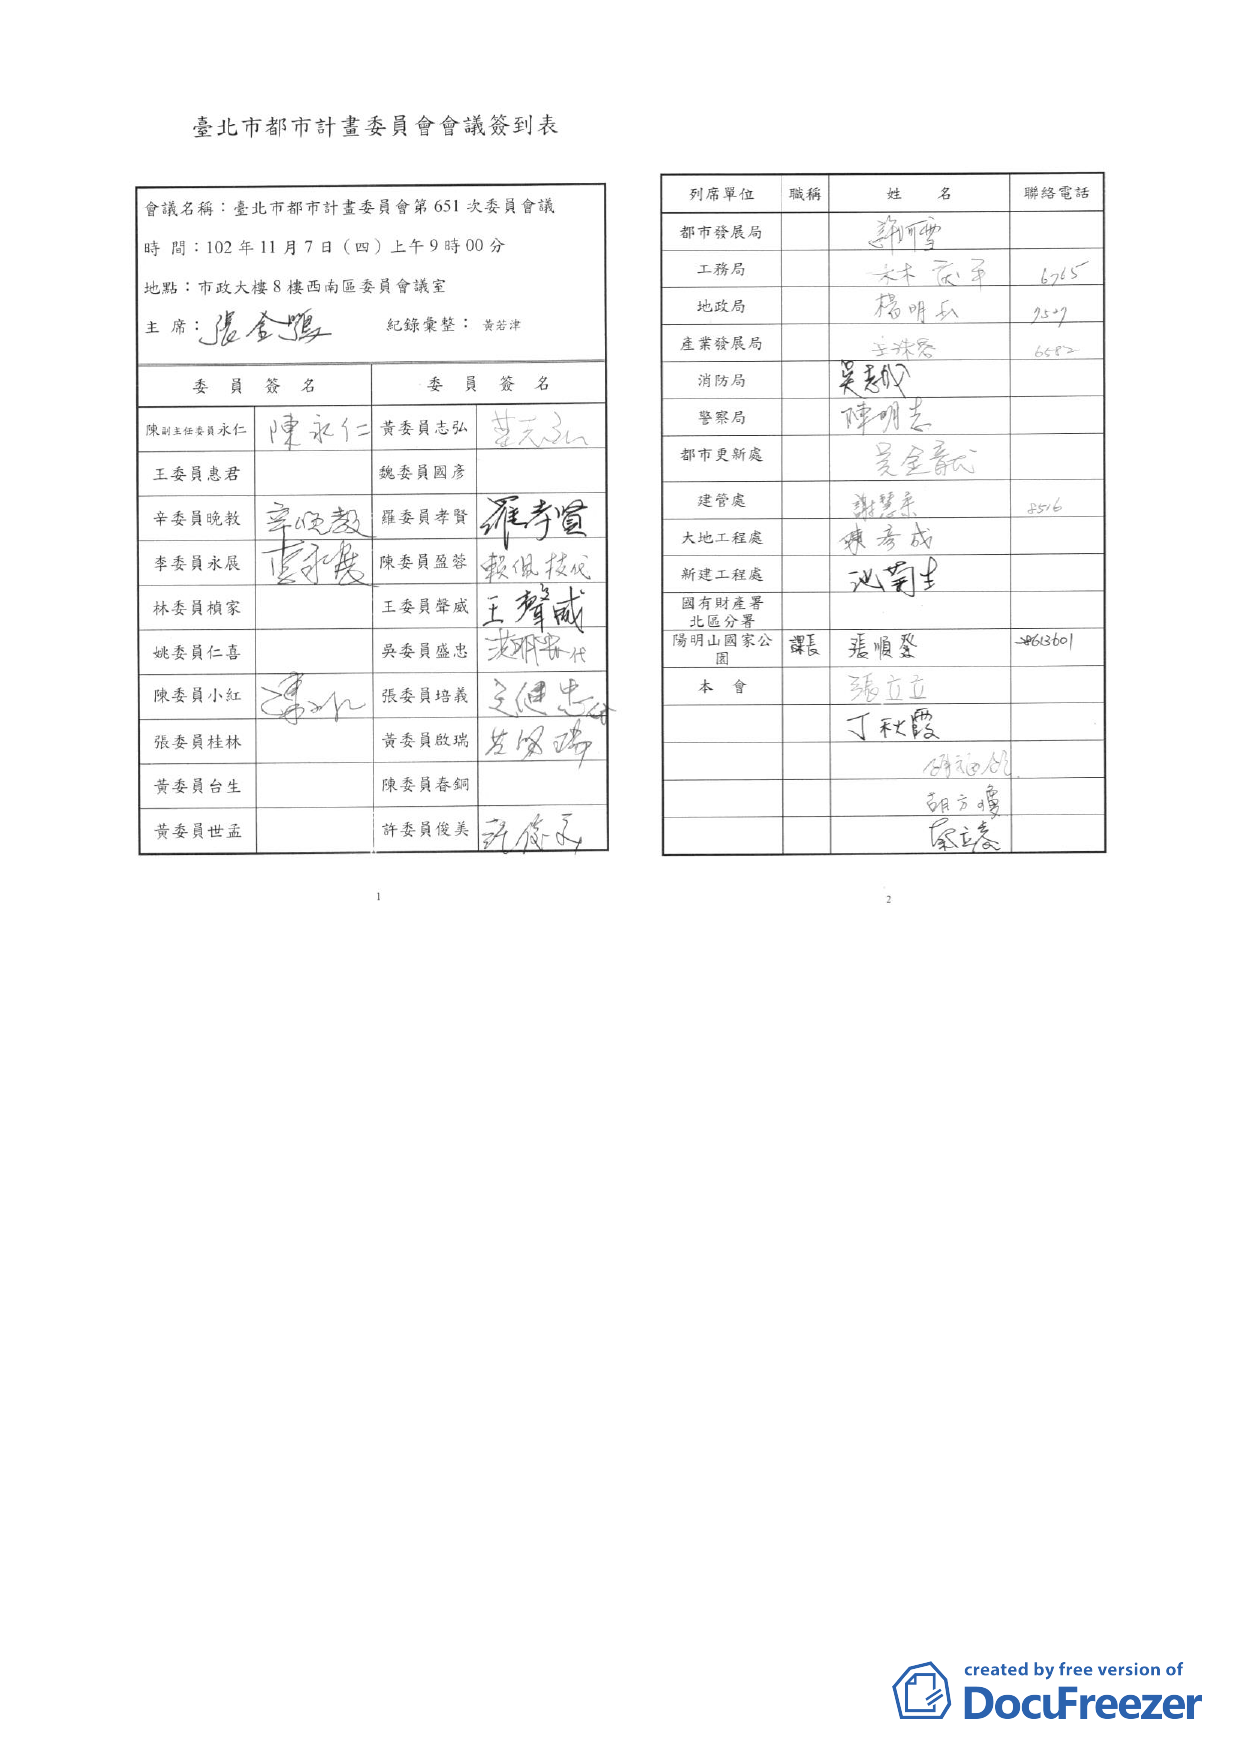 臺北市都市計畫委員會會議簽到表
會議名稱：臺北市都市計畫委員會第 651 次委員會議
時 間：102 年 11 月 7 日（四）上午 9 時 00 分
地點：市政大樓 8 樓西南區委員會議室
主 席： 張金鶚 紀錄彙整： 黃若津
委 員 簽 名 委 員 簽 名
陳副主任委員永仁 陳永仁 黃委員志弘 黃志弘
王委員惠君 魏委員國彥
辛委員晚教 辛晚教 羅委員孝賢 羅孝賢
李委員永展 李永展 陳委員盈蓉 賴佩技代
林委員楨家 王委員聲威 王聲威
姚委員仁喜 吳委員盛忠 代
陳委員小紅 陳小紅 張委員培義 代
張委員桂林 黃委員啟瑞 黃啟瑞
黃委員台生 陳委員春銅
黃委員世孟 許委員俊美 許俊美
1
列席單位 職稱 姓 名 聯絡電話
都市發展局 許阿雪
工務局 6765
地政局 楊明
產業發展局 6582
消防局 吳
警察局 陳明志
都市更新處 代
建管處 謝慧 8516
大地工程處 陳彥成
新建工程處 池蘭生
國有財產署
北區分署
陽明山國家公
園 課長 張順發 28613601
本 會 張立立
丁秋霞
胡方瓊
蔡立凌
2
created by free version of
DocuFreezer